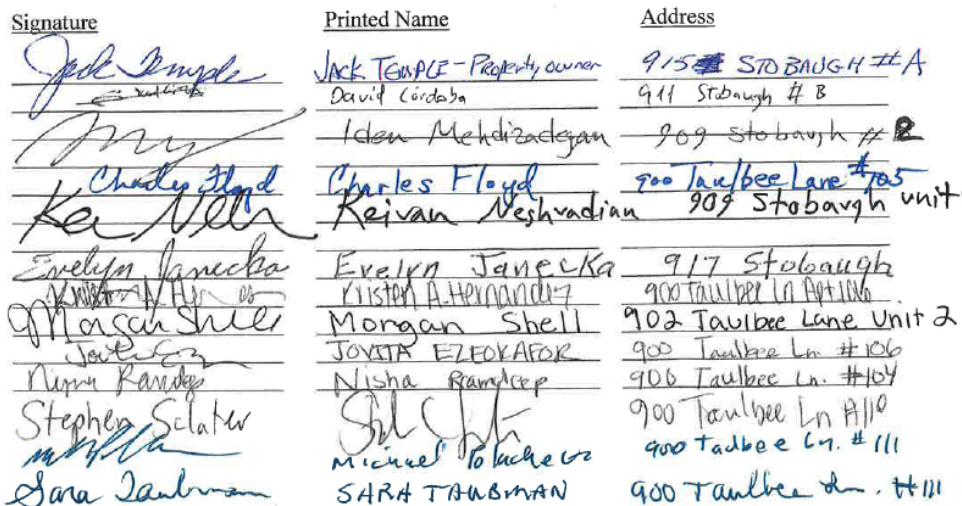 Signature Printed Name Address
Jack Temple JACK TEMPLE - Property owner 915 STOBAUGH # A
David Córdoba 911 Stobaugh # B
Iden Mehdizadegan 909 Stobaugh #
Charles Floyd Charles Floyd 900 Taulbee Lane #105
Keivan Neshvadian 909 Stobaugh unit
Evelyn Janecka Evelyn Janecka 917 Stobaugh
Kristen A. Hernandez 900 Taulbee Ln Apt
Morgan Shell Morgan Shell 902 Taulbee Lane Unit 2
JOVITA EZEOKAFOR 900 Taulbee Ln. #106
Nisha Ramdeep 900 Taulbee Ln. #104
Stephen Sclater 900 Taulbee Ln A110
Michael 900 Taulbee Ln. # 111
Sara Taubman SARA TAUBMAN 900 Taulbee Ln. #111